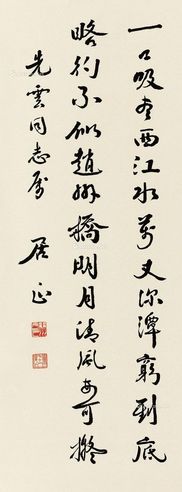 一口吸尽西江水万丈深潭穷到底
略彴不似趙州橋明月清風安可擬
先雲同志屬
居正